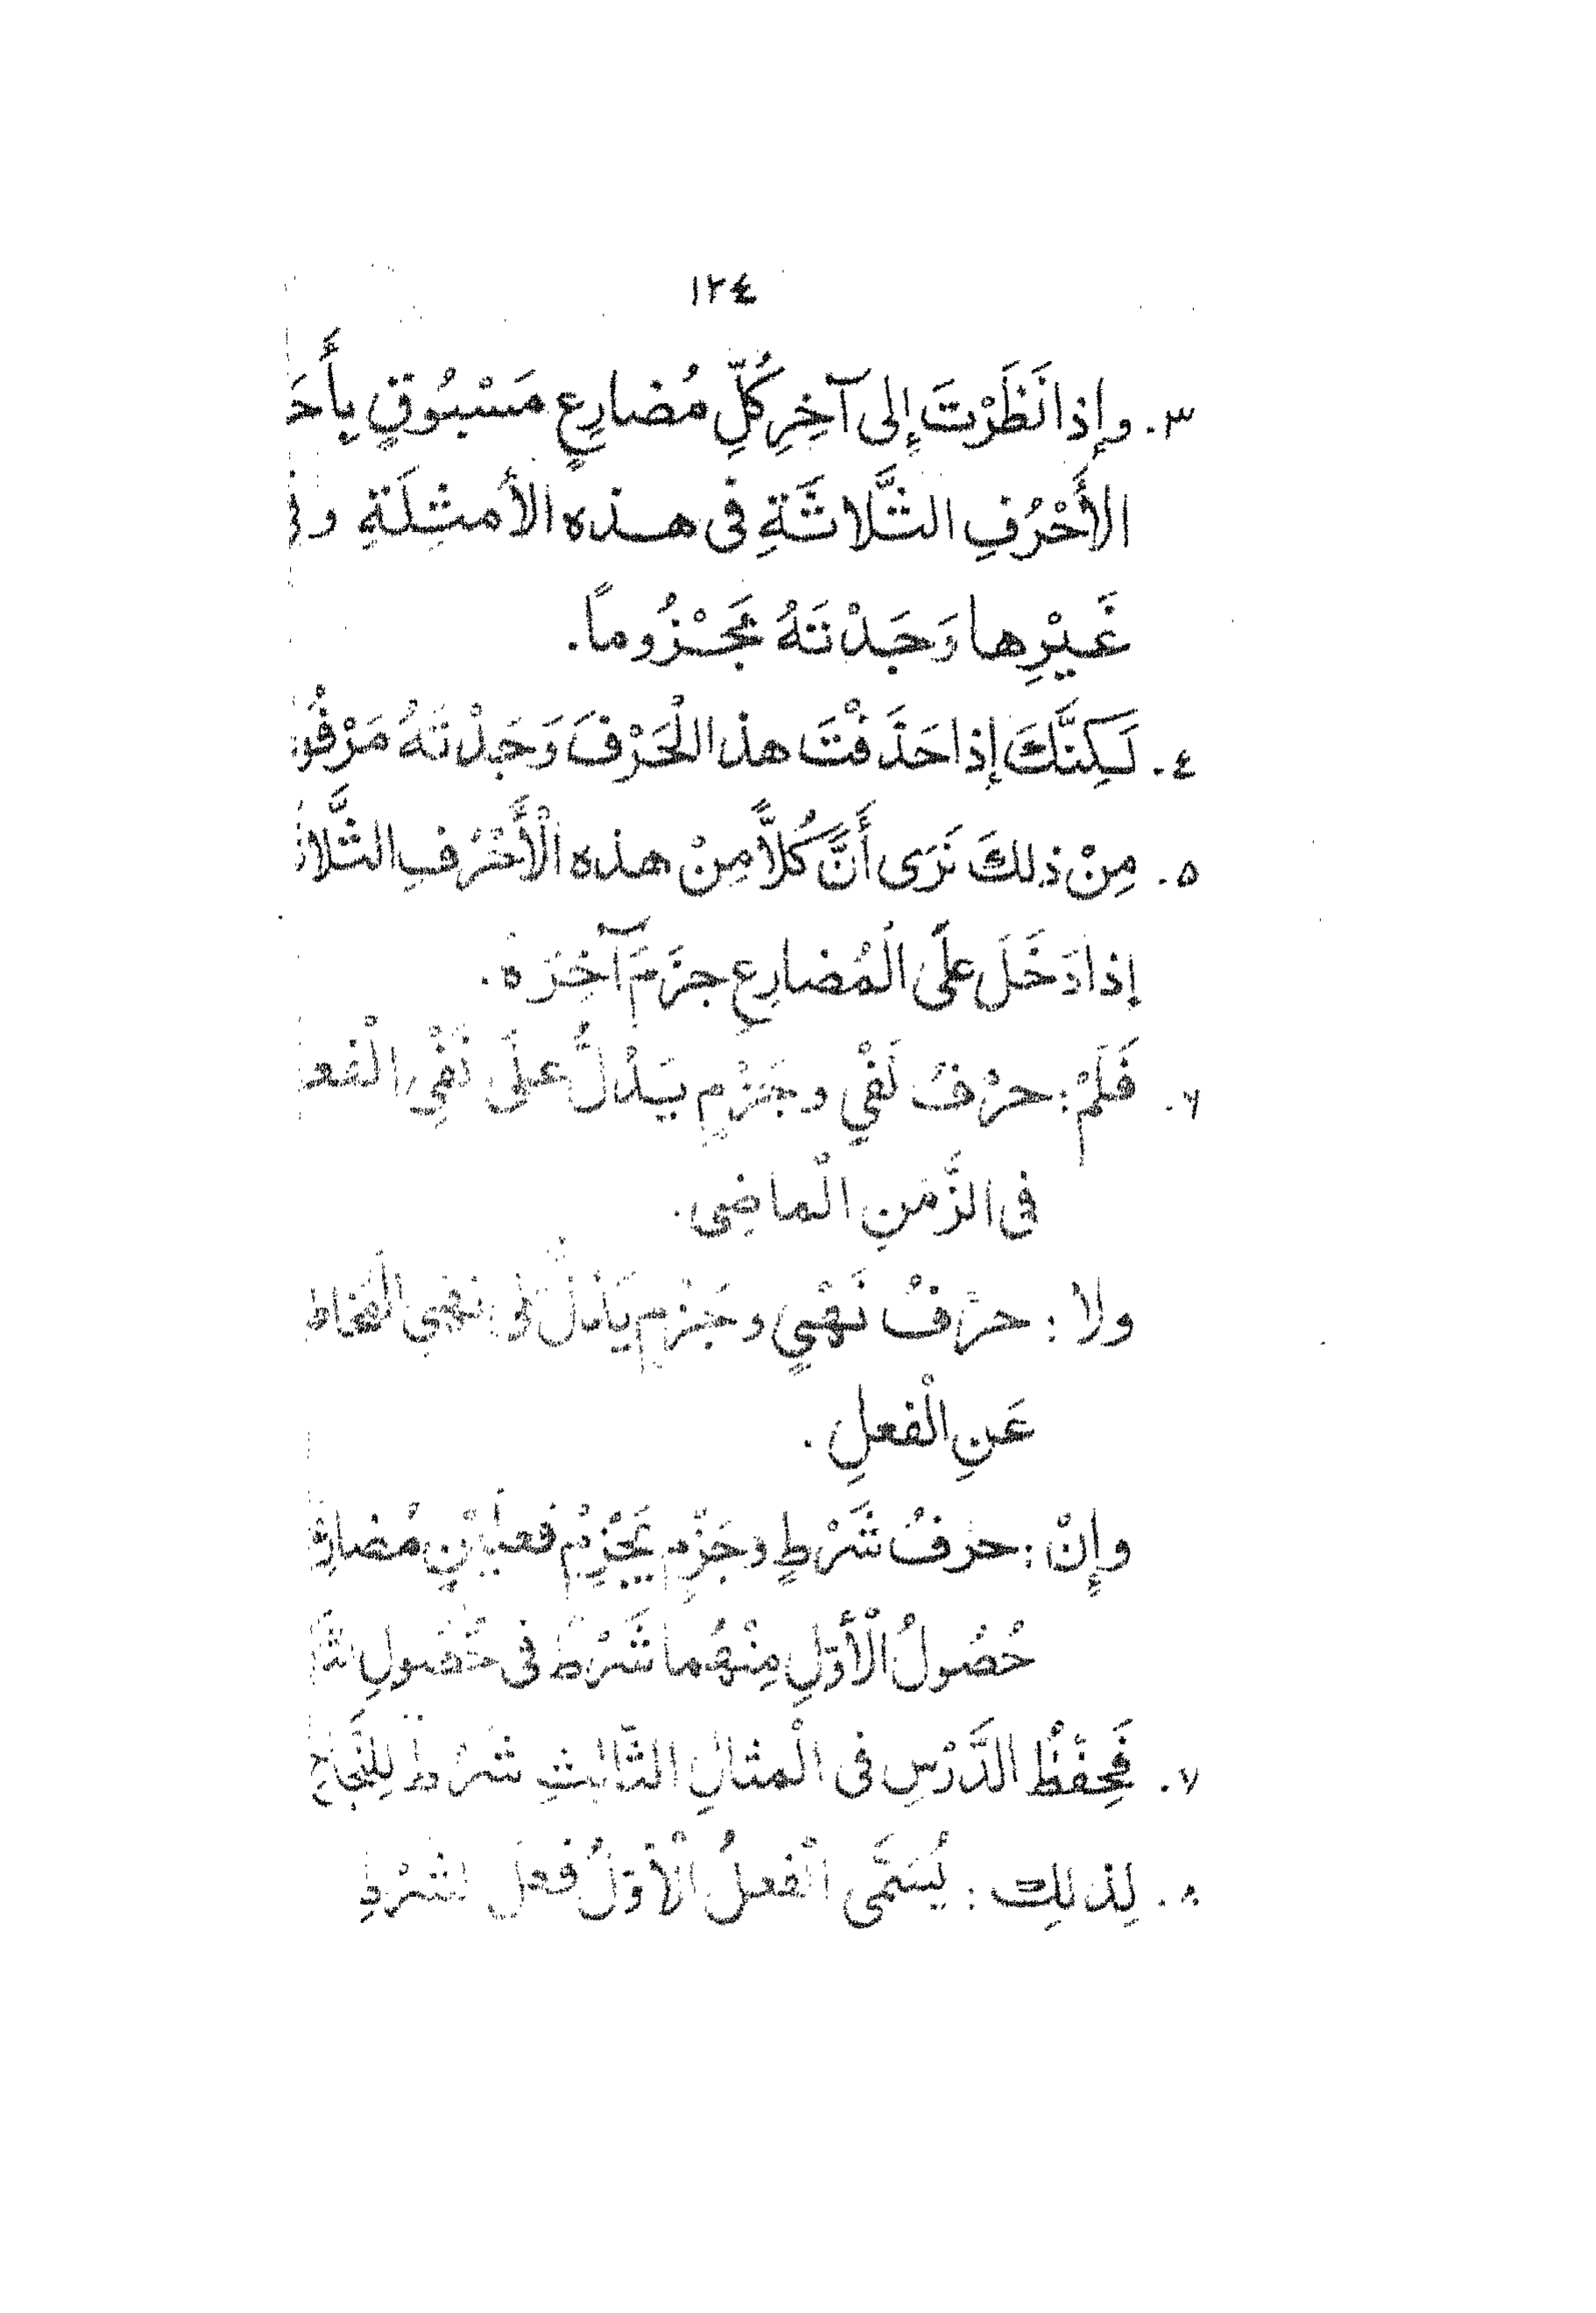 ١٢٤
٣. وإذا نَظَرْتَ إلى آخِرِ كُلِّ مُضارِعٍ مَسْبُوقٍ بِأَحَ
الأَحْرُفِ الثَّلاثَةِ فى هذه الأمثِلَةِ وفى
غَيْرِها وَجَدْتَهُ مَجْزُوماً.
٤. لَكِنَّكَ إذا حَذَفْتَ هذا الْحَرْفَ وَجَدْتَهُ مَرْفُو
٥. مِنْ ذلكَ نَرَى أَنَّ كُلاًّ مِنْ هذه الْأَحْرُفِ الثَّلاثَ
إذا دَخَلَ علَى الْمُضارِعِ جزَمَ آخِرَهُ.
٦. فَلَمْ: حرْفُ نَفْيٍ وجَزْمٍ يَدُلُّ علَى نَفْىِ الْفع
فى الزَّمَنِ الْماضِى.
ولا: حرْفُ نَهْيٍ وجَزْمٍ يَدُلُّ نهْىِ
عَنِ الْفعلِ.
وإِنْ: حرْفُ شَرْطٍ وجَزْمٍ يَجْزِمُ فعلَيْنِ مُضارِ
حُصُولُ الْأَوّلِ مِنْهُما شَرْطٌ فى حُصُولِ
٧. فَحِفْظُ الدَّرْسِ فى الْمثالِ الثّالثِ شَرْطٌ لِلنَّجاحِ
٨. لِذلِك: يُسَمَّى الْفعلُ الْأَوّلُ فعلَ الشَرْطِ